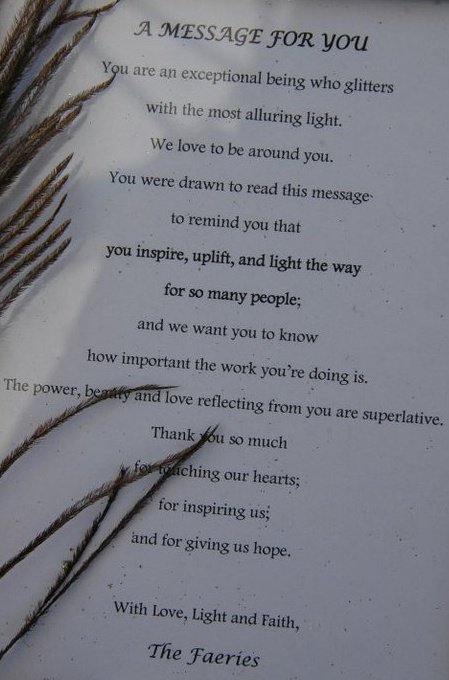 A MESSAGE FOR YOU
You are an exceptional being who glitters
with the most alluring light.
We love to be around you.
You were drawn to read this message
to remind you that
you inspire, uplift, and light the way
for so many people;
and we want you to know
how important the work you're doing is.
The power, beauty and love reflecting from you are superlative.
Thank you so much
for touching our hearts;
for inspiring us;
and for giving us hope.
With Love, Light and Faith,
The Faeries